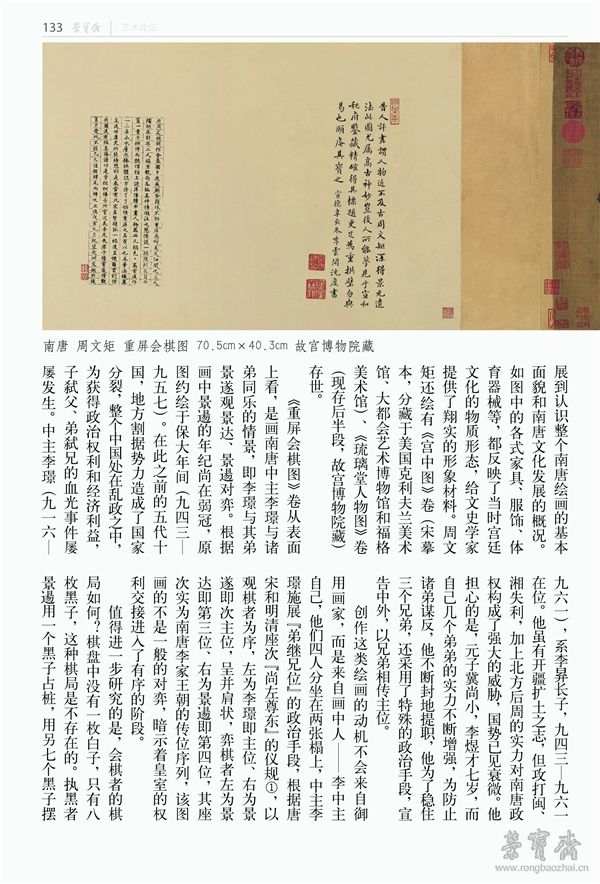 133 荣宝斋 艺术论坛
昔人評畫謂人物近不及古周文矩深得景元遺
法此圖尤屬高古神妙豈後人所能夢見于宣和
秘府鑒藏精確得其標題更足為重拱璧勿與
易也頤庵其寶之 宣德辛亥冬季雲間沈度書
南唐 周文矩 重屏会棋图 70.5cm×40.3cm 故宫博物院藏
展到认识整个南唐绘画的基本
面貌和南唐文化发展的概况。
如图中的各式家具、服饰、体
育器械等，都反映了当时宫廷
文化的物质形态，给文史学家
提供了翔实的形象材料。周文
矩还绘有《宫中图》卷（宋摹
本，分藏于美国克利夫兰美术
馆、大都会艺术博物馆和福格
美术馆）、《琉璃堂人物图》卷
（现存后半段，故宫博物院藏）
存世。
《重屏会棋图》卷从表面
上看，是画南唐中主李璟与诸
弟同乐的情景，即李璟与其弟
景遂观景达、景逷对弈。根据
画中景逷的年纪尚在弱冠，原
图约绘于保大年间（九四三—
九五七）。在此之前的五代十
国，地方割据势力造成了国家
分裂，整个中国处在乱政之中，
为获得政治权利和经济利益，
子弑父、弟弑兄的血光事件屡
屡发生。中主李璟（九一六—
九六一），系李昪长子，九四三—九六一
在位。他虽有开疆扩土之志，但攻打闽、
湘失利，加上北方后周的实力对南唐政
权构成了强大的威胁，国势已见衰微。他
担心的是，元子冀尚小，李煜才七岁，而
自己几个弟弟的实力不断增强，为防止
诸弟谋反，他不断封地提职，他为了稳住
三个兄弟，还采用了特殊的政治手段，宣
告中外，以兄弟相传主位。
创作这类绘画的动机不会来自御
用画家，而是来自画中人——李中主
自己，他们四人分坐在两张榻上，中主李
璟施展『弟继兄位』的政治手段，根据唐
宋和明清座次『尚左尊东』的仪规①，以
观棋者为序，左为李璟即主位、右为景
遂即次主位，呈并肩状，弈棋者左为景
达即第三位、右为景逷即第四位，其座
次实为南唐李家王朝的传位序列，该图
画的不是一般的对弈，暗示着皇室的权
利交接进入了有序的阶段。
值得进一步研究的是，会棋者的棋
局如何？棋盘中没有一枚白子，只有八
枚黑子，这种棋局是不存在的。执黑者
景逷用一个黑子占桩，用另七个黑子摆
荣宝斋
www.rongbaozhai.cn